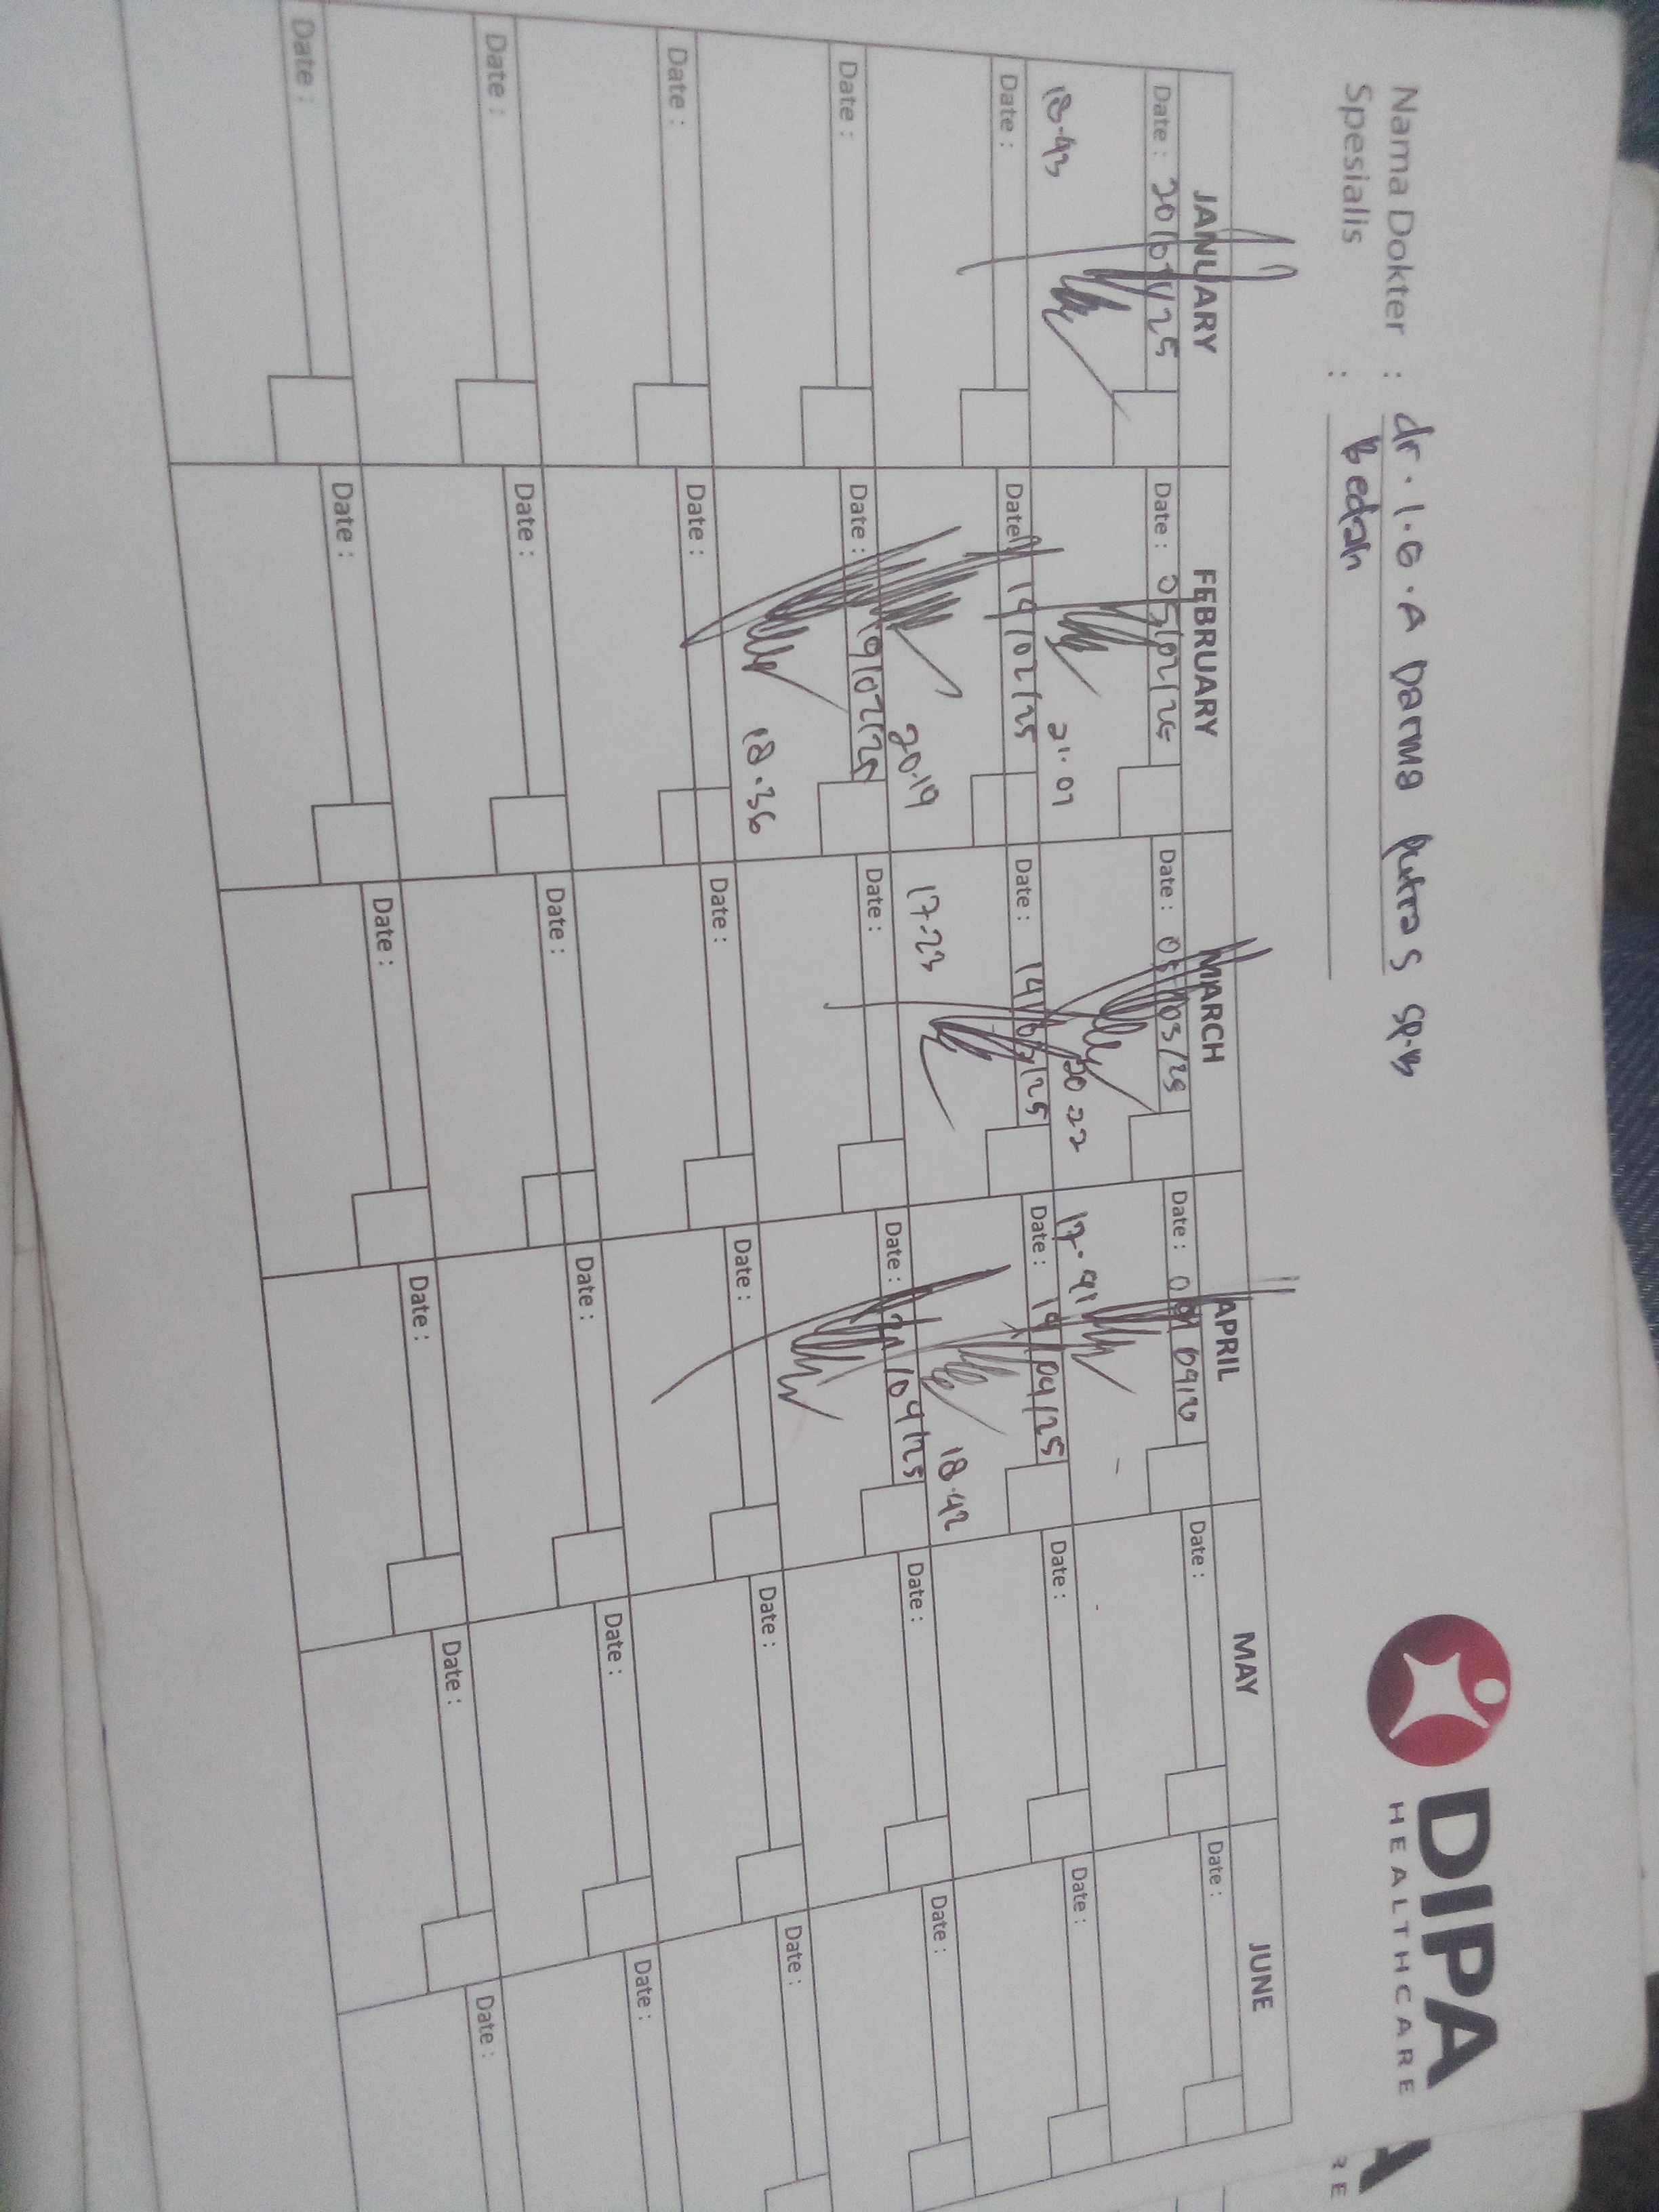 Nama Dokter : dr. I. G. A Darma Putra S Sp.B
Spesialis : Bedah
DIPA
HEALTHCARE
JANUARY FEBRUARY MARCH APRIL MAY JUNE
Date : 20/01/25 Date : 05/02/25 Date : 05/03/25 Date : Date : Date :
18.43 21.01 20.22 17.41
Date : Date : 14/02/25 Date : 14/03/25 Date : 14/04/25 Date : Date :
20.19 17.23 18.42
Date : Date : 19/02/25 Date : Date : /04/25 Date : Date :
18.36
Date : Date : Date : Date : Date : Date :
Date : Date : Date : Date : Date : Date :
Date : Date : Date : Date : Date : Date :